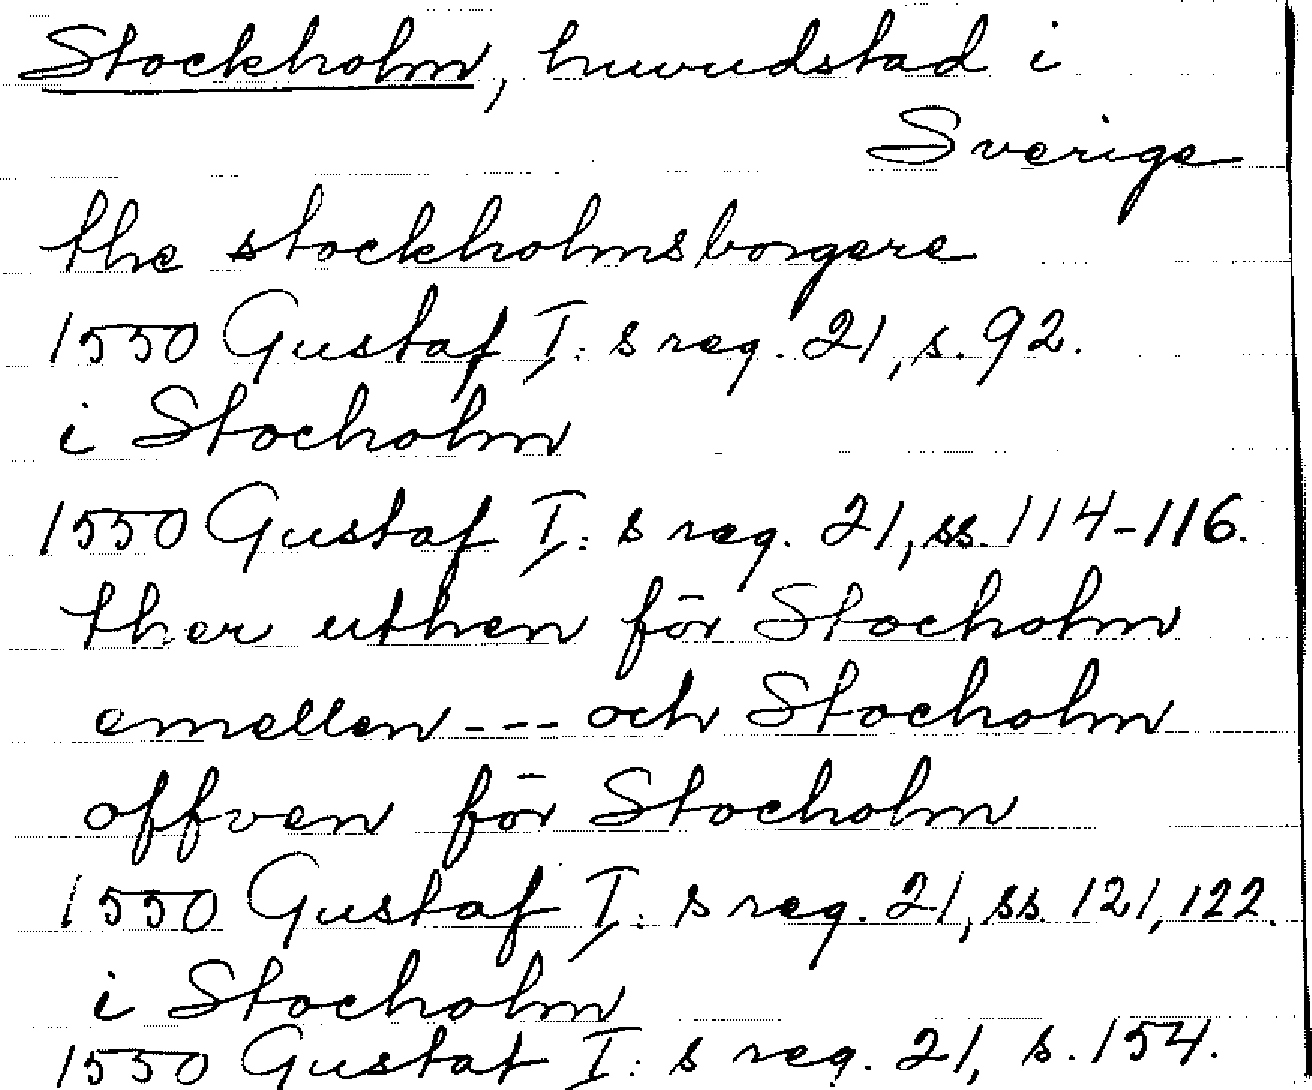 Stockholm, huvudstad i
Sverige
the stockholmsborgere
1550 Gustaf I:s reg. 21, s. 92.
i Stocholm
1550 Gustaf I:s reg. 21, ss. 114-116.
ther uthen för Stocholm
emellen --- och Stocholm
offven för Stocholm
1550 Gustaf I:s reg. 21, ss. 121, 122.
i Stocholm
1550 Gustaf I:s reg. 21, s. 154.